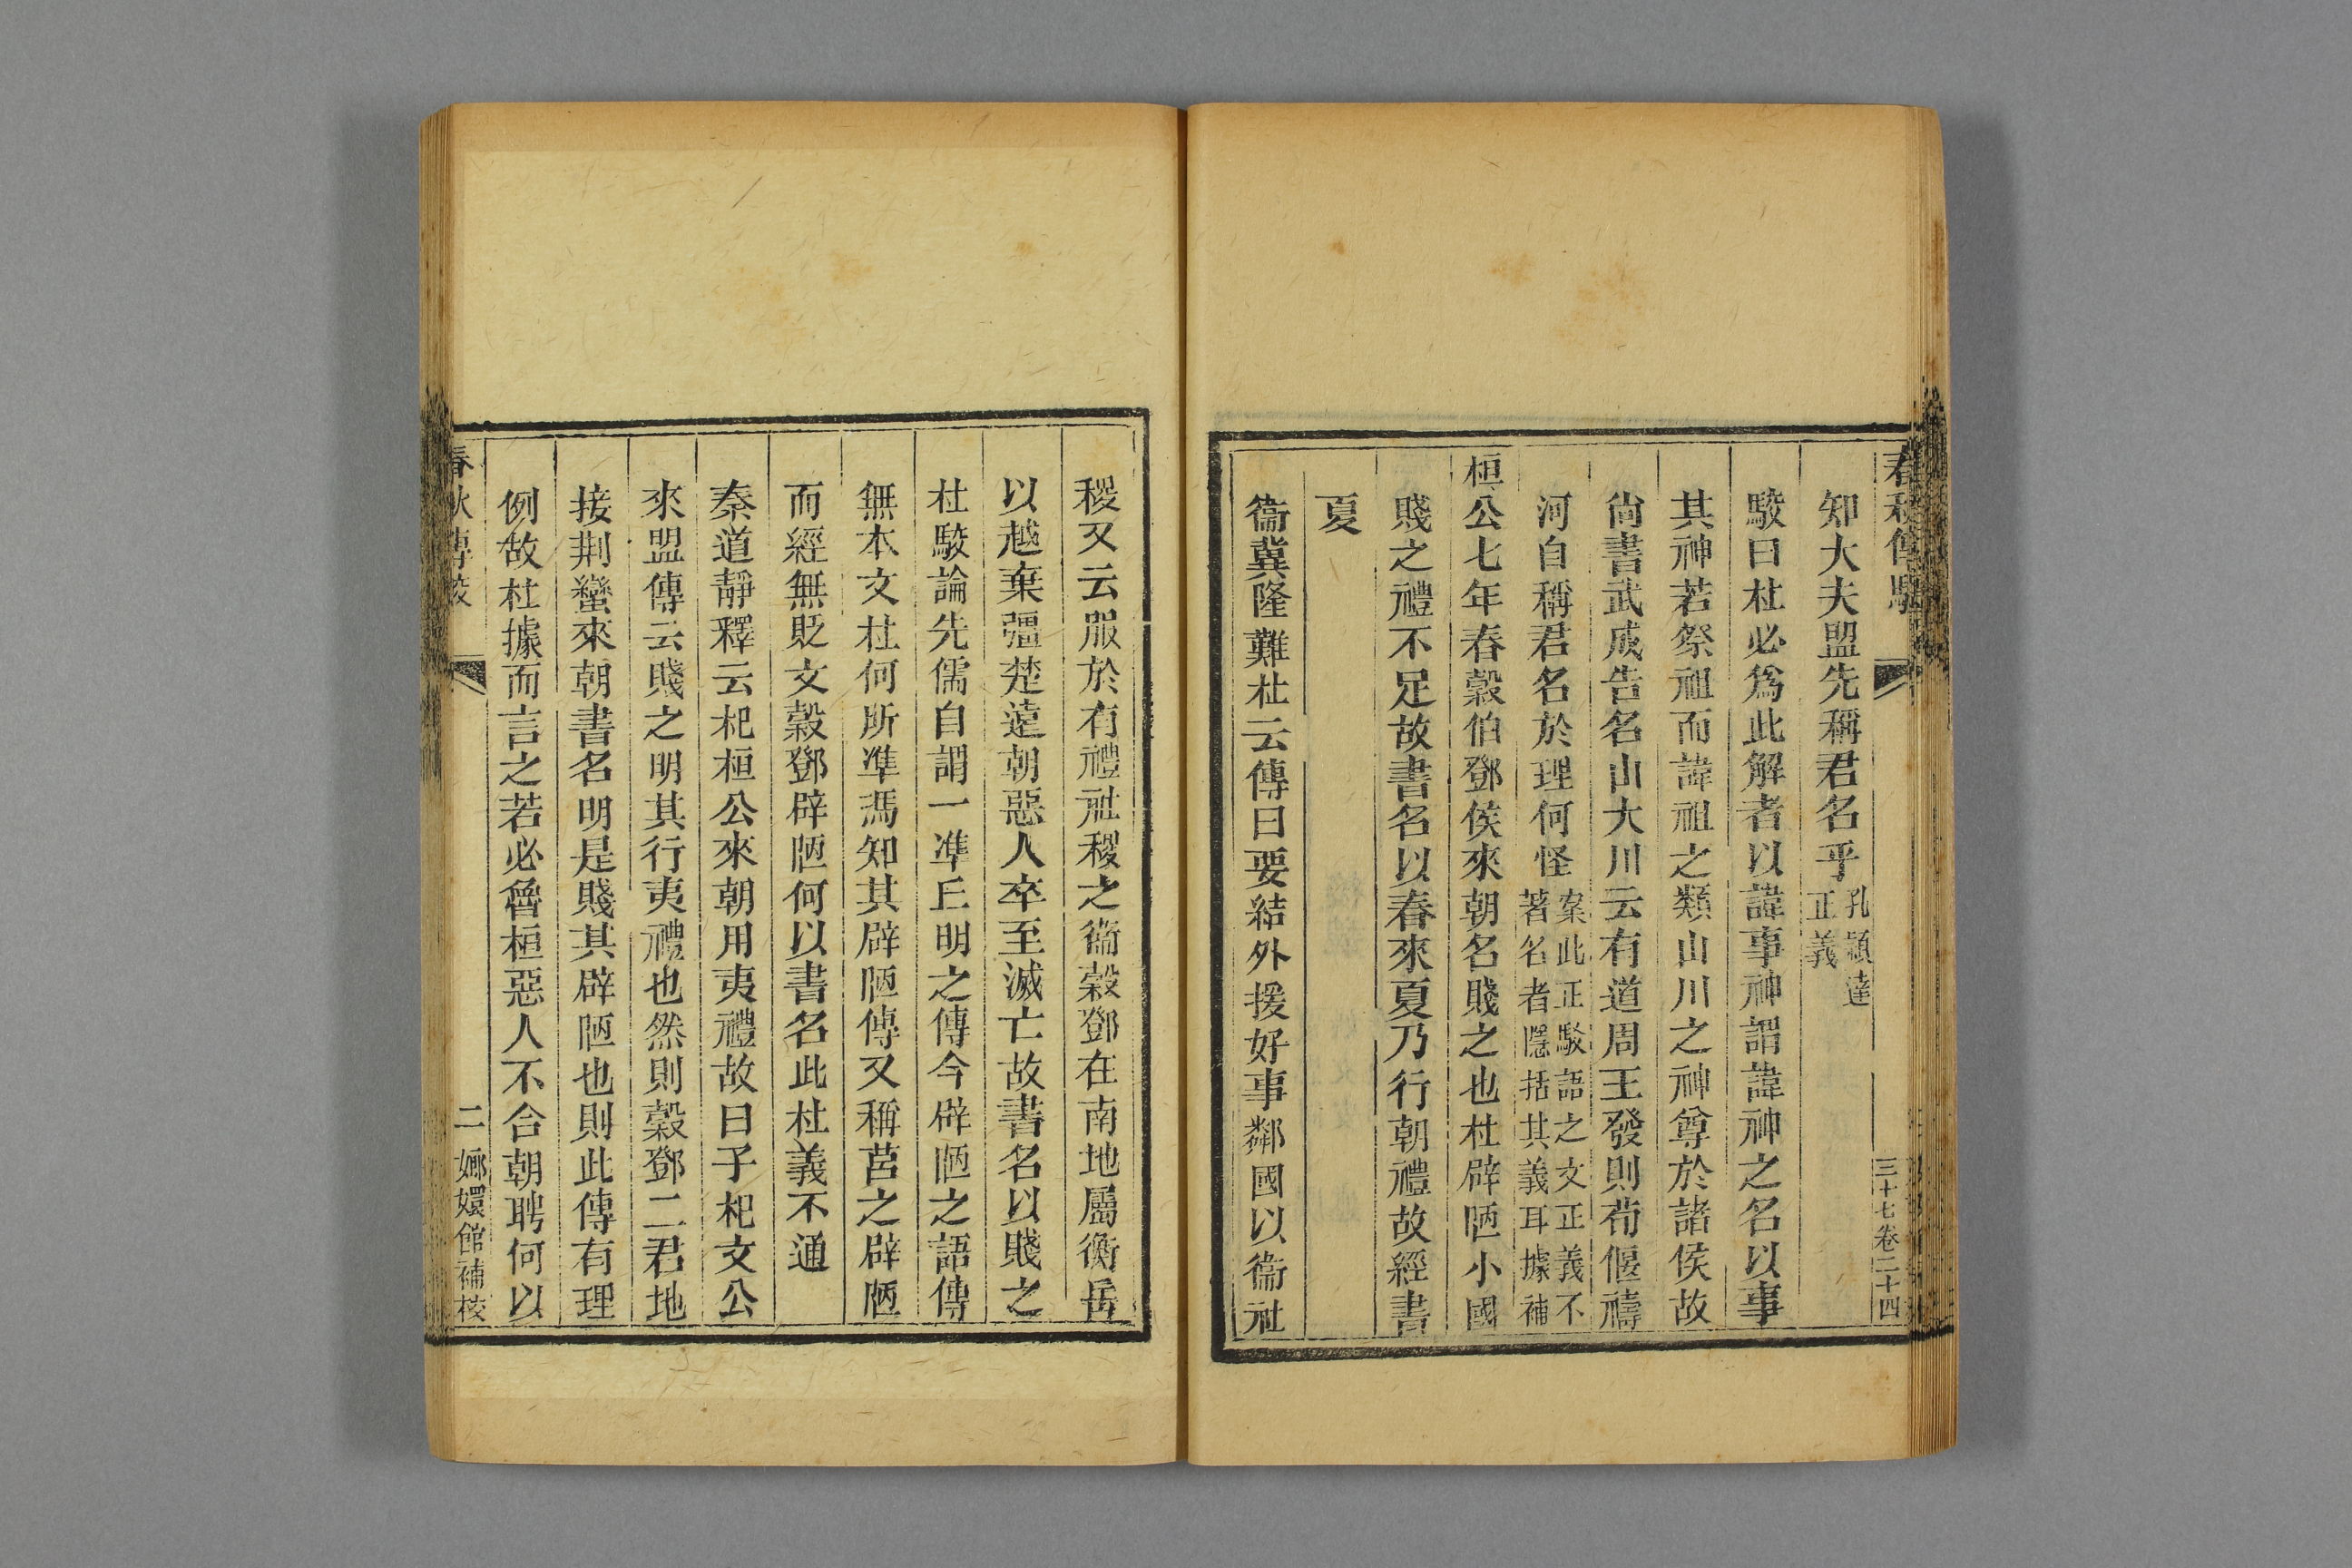 春秋傳駮
三十七卷二十四
知大夫盟先稱君名乎孔穎達正義
駮曰杜必爲此解者以諱事神謂諱神之名以事
其神若祭祖而諱祖之類山川之神尊於諸侯故
尙書武成告名山大川云有道周王發則荀偃禱
河自稱君名於理何怪案此正駮語之文正義不著名者隱括其義耳據補
桓公七年春穀伯鄧侯來朝名賤之也杜辟陋小國
賤之禮不足故書名以春來夏乃行朝禮故經書
夏
衞冀隆難杜云傳曰要結外援好事鄰國以衞社
稷又云服於有禮社稷之衞穀鄧在南地屬衡岳
以越棄彊楚遠朝惡人卒至滅亡故書名以賤之
杜駮論先儒自謂一準丘明之傳今辟陋之語傳
無本文杜何所準馮知其辟陋傳又稱莒之辟陋
而經無貶文穀鄧辟陋何以書名此杜義不通
秦道靜釋云杞桓公來朝用夷禮故曰子杞文公
來盟傳云賤之明其行夷禮也然則穀鄧二君地
接荆蠻來朝書名明是賤其辟陋也則此傳有理
例故杜據而言之若必魯桓惡人不合朝聘何以
春秋傳駮
二
嫏嬛館補校